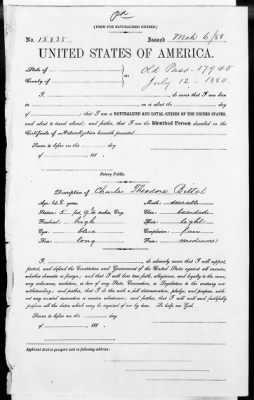 [FORM FOR NATURALIZED CITIZEN.]
No. 15835 Issued Mch 6/88
UNITED STATES OF AMERICA.
State of
County of
ss:
Old Pass. 17945
July 12 - 1880.
I, do swear that I was born
in on or about the day
of ; that I am a NATURALIZED AND LOYAL CITIZEN OF THE UNITED STATES,
and about to travel abroad; and further, that I am the Identical Person described in the
Certificate of Naturalization herewith presented
Sworn to before me this day
of 188
Notary Public.
Description of Charles Theodore
Age: years. Mouth:
Stature: 5 feet, inches, Eng. Chin:
Forehead: high Hair: light
Eyes: blue Complexion: fair
Nose: long Face:
I, do solemnly swear that I will support,
protect, and defend the Constitution and Government of the United States against all enemies,
whether domestic or foreign; and that I will bear true faith, allegiance, and loyalty to the same,
any ordinance, resolution, or law of any State, Convention, or Legislature to the contrary not-
withstanding; and further, that I do this with a full determination, pledge, and purpose, with-
out any mental reservation or evasion whatsoever; and further, that I will well and faithfully
perform all the duties which may be required of me by law. So help me God.
Sworn to before me this day
of 188
Applicant desires passport sent to following address: